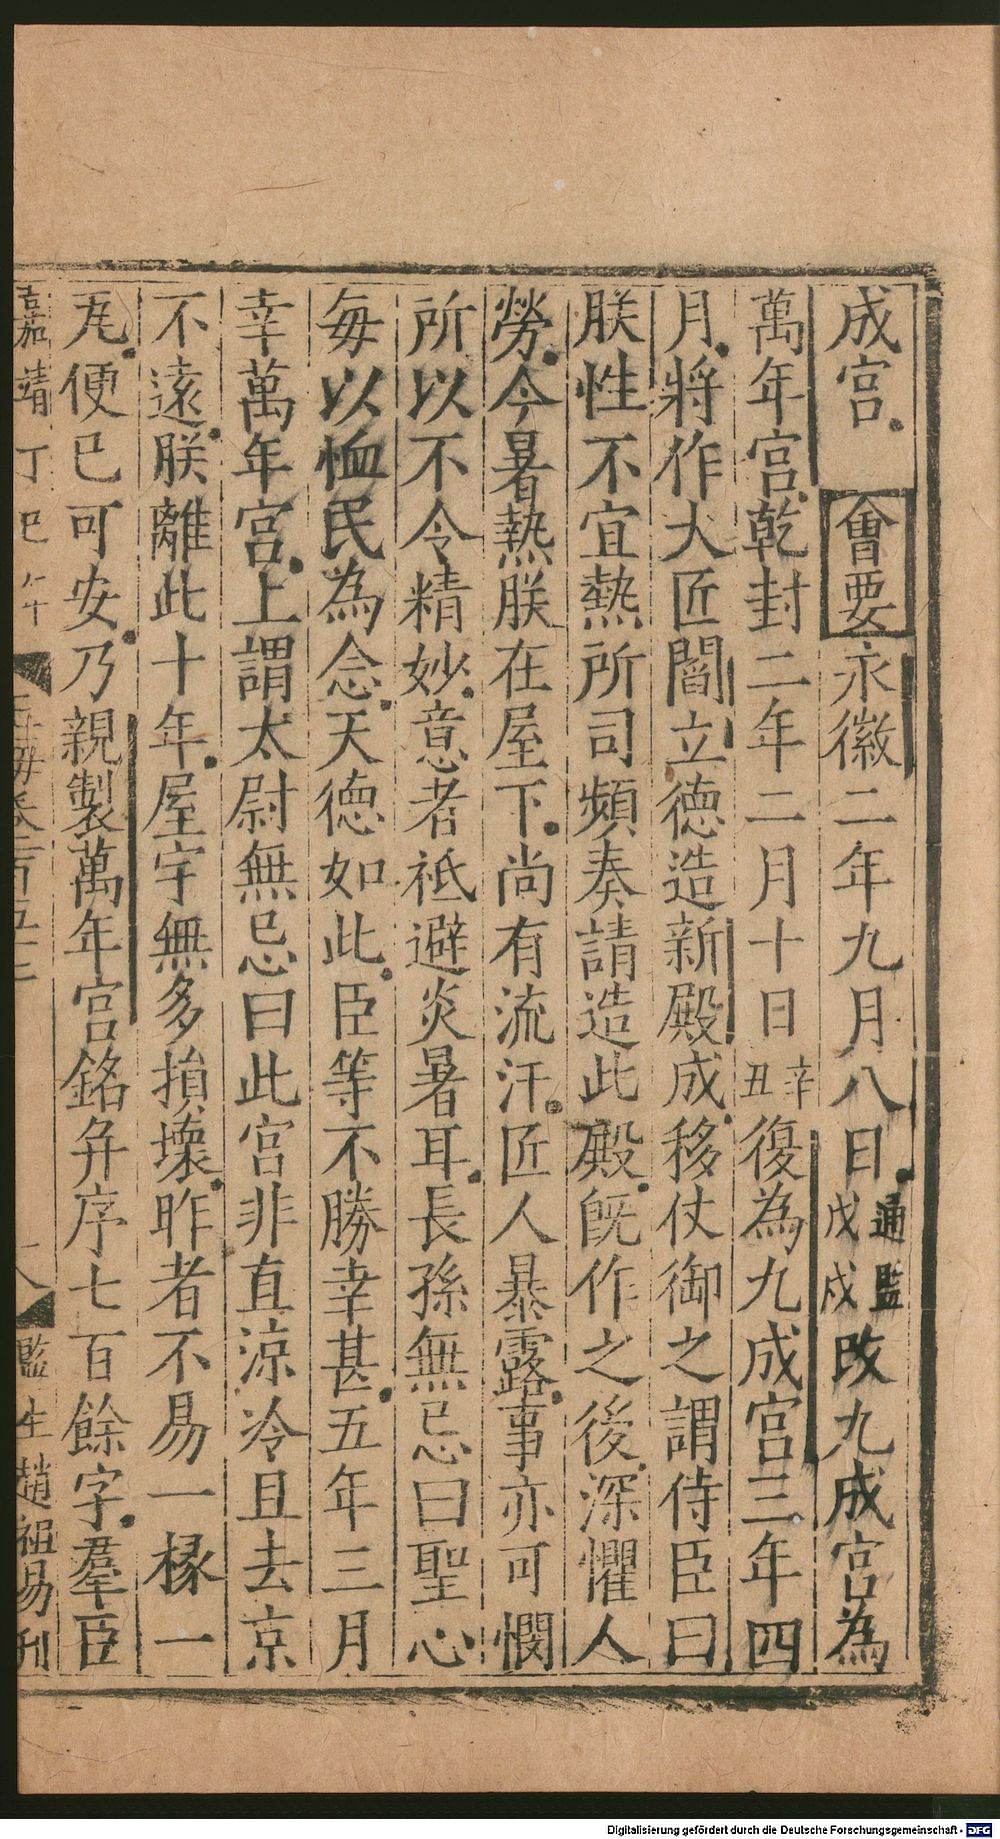 成宮會要永徽二年九月八日通監戊戌改九成宮為
萬年宮乾封二年二月十日辛丑復為九成宮三年四
月將作大匠閻立德造新殿成移仗御之謂侍臣曰
朕性不宜熱所司頻奏請造此殿旣作之後深懼人
勞今暑熱朕在屋下尚有流汗匠人暴露事亦可憫
所以不令精妙意者祗避炎暑耳長孫無忌曰聖心
每以恤民為念天德如此臣等不勝幸甚五年三月
幸萬年宮上謂太尉無忌曰此宮非直涼冷且去京
不遠朕離此十年屋宇無多損壞昨者不易一椽一
瓦便已可安乃親製萬年宮銘并序七百餘字羣臣
嘉靖丁巳年
玉海卷一百五十七
十八
監生趙祖易刊
Digitalisierung gefördert durch die Deutsche Forschungsgemeinschaft - DFG